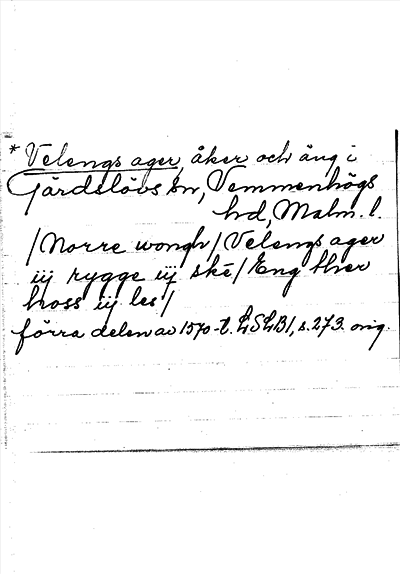 * Velengs ager, åker och äng i
Gärdslövs sn, Vemmenhögs
hd, Malm. l.
/Norre wongh/Velengs ager
iij rygge iij skē/Eng ther
hoss iij les/
förra delen av 1570-t. LSLB1, s. 273. orig.